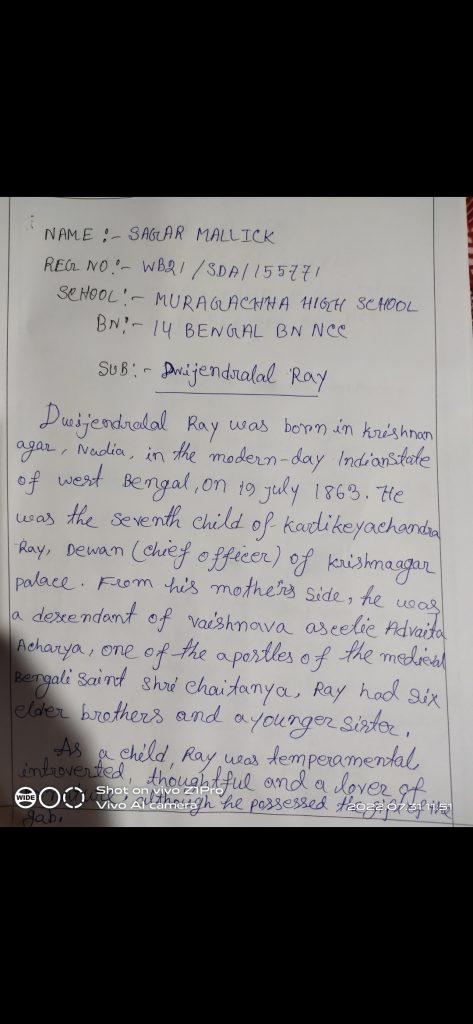 NAME :- SAGAR MALLICK
REG NO:- WB21/SDA/155771
SCHOOL:- MURAGACHHA HIGH SCHOOL
BN:- 14 BENGAL BN NCC
SUB:- Dwijendralal Ray
Dwijendralal Ray was born in Krishnan
agar, Nadia, in the modern-day Indian State
of west Bengal, on 19 July 1863. He
was the seventh child of Kardikeyachandra
Ray, Dewan (chief officer) of Krishnaagar
palace. From his mother's side, he was
a descendant of vaishnava ascetic Advaita
Acharya, one of the apostles of the medieval
Bengali saint shri chaitanya, Ray had six
elder brothers and a younger sister.
As a child, Ray was temperamental,
introverted, thoughtful and a lover of
although he possessed the gift of the
gab.
WIDE
Shot on vivo Z1Pro
Vivo AI camera
2022.07.31 11:51